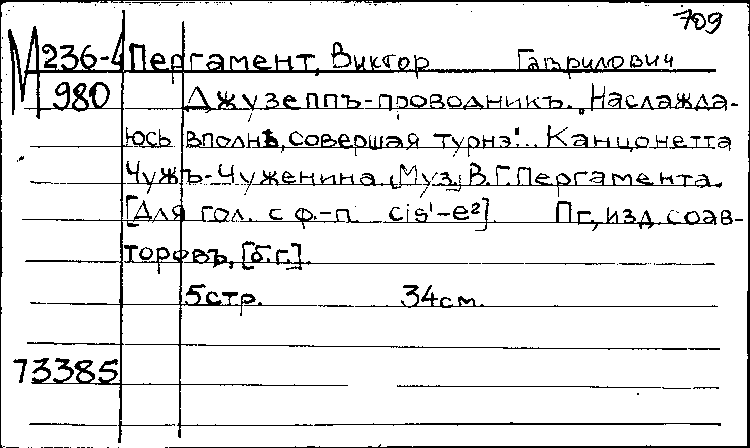 709
М 236-4 Пергамент, Виктор Гаврилович
980 Джузеппъ-проводникъ. „Наслажда-
юсь вполнѣ, совершая турнэ!.. Канцонетта
Чужъ-Чуженина. [Муз.] В.Г. Пергамента.
[Для гол. с ф.-п. cis¹-e²]. Пг., изд. соав-
торовъ, [б.г.].
5 стр. 34 см.
73385